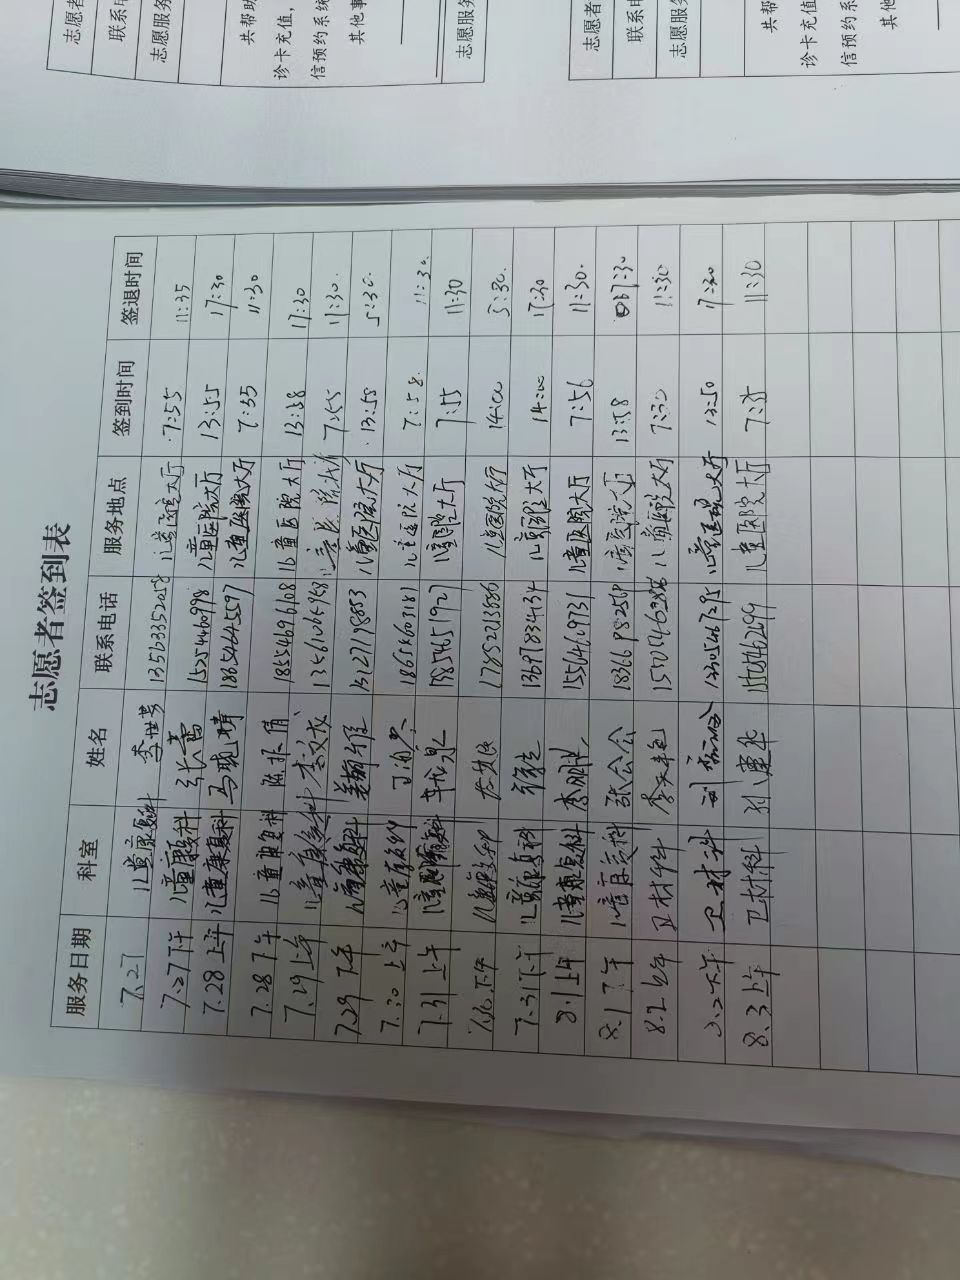 志愿者
联系电
志愿服务
共帮助
诊卡充值，
信预约系统
其他事
志愿服务
志愿者
联系电
志愿服务
共
诊卡充值
信预约系
其他
志愿者签到表
服务日期 科室 姓名 联系电话 服务地点 签到时间 签退时间
7.27 儿童康复科 李世芳 13563352058 儿童医院大厅 7:55 11:35
7.27下午 儿童康复科 张蕾 15254460998 儿童医院大厅 13:55 17:30
7.28上午 儿童康复科 马晓晴 18654645597 儿童医院大厅 7:55 11:30
7.28下午 儿童康复科 18554696108 儿童医院大厅 13:58 17:30
7.29上午 儿童康复科 李文成 儿童医院大厅 7:55 11:30
7.29下午 儿童康复科 儿童医院大厅 13:55 5:30
7.30上午 儿童康复科 18615603181 儿童医院大厅 7:58 11:30
7.31上午 儿童康复科 儿童医院大厅 7:55 11:30
7.30下午 儿童康复科 17852013886 儿童医院大厅 14:00 5:30
7.31下午 儿童康复科 13697834434 儿童医院大厅 14:00 17:30
8.1上午 儿童康复科 儿童医院大厅 7:56 11:30
8.1下午 儿童康复科 张公公 18366982569 儿童医院大厅 13:58 17:30
8.2上午 卫材科 儿童医院大厅 7:30 11:30
下午 卫材科 儿童医院大厅 13:50 17:30
8.3上午 卫材科 孙建华 儿童医院大厅 7:35 11:30